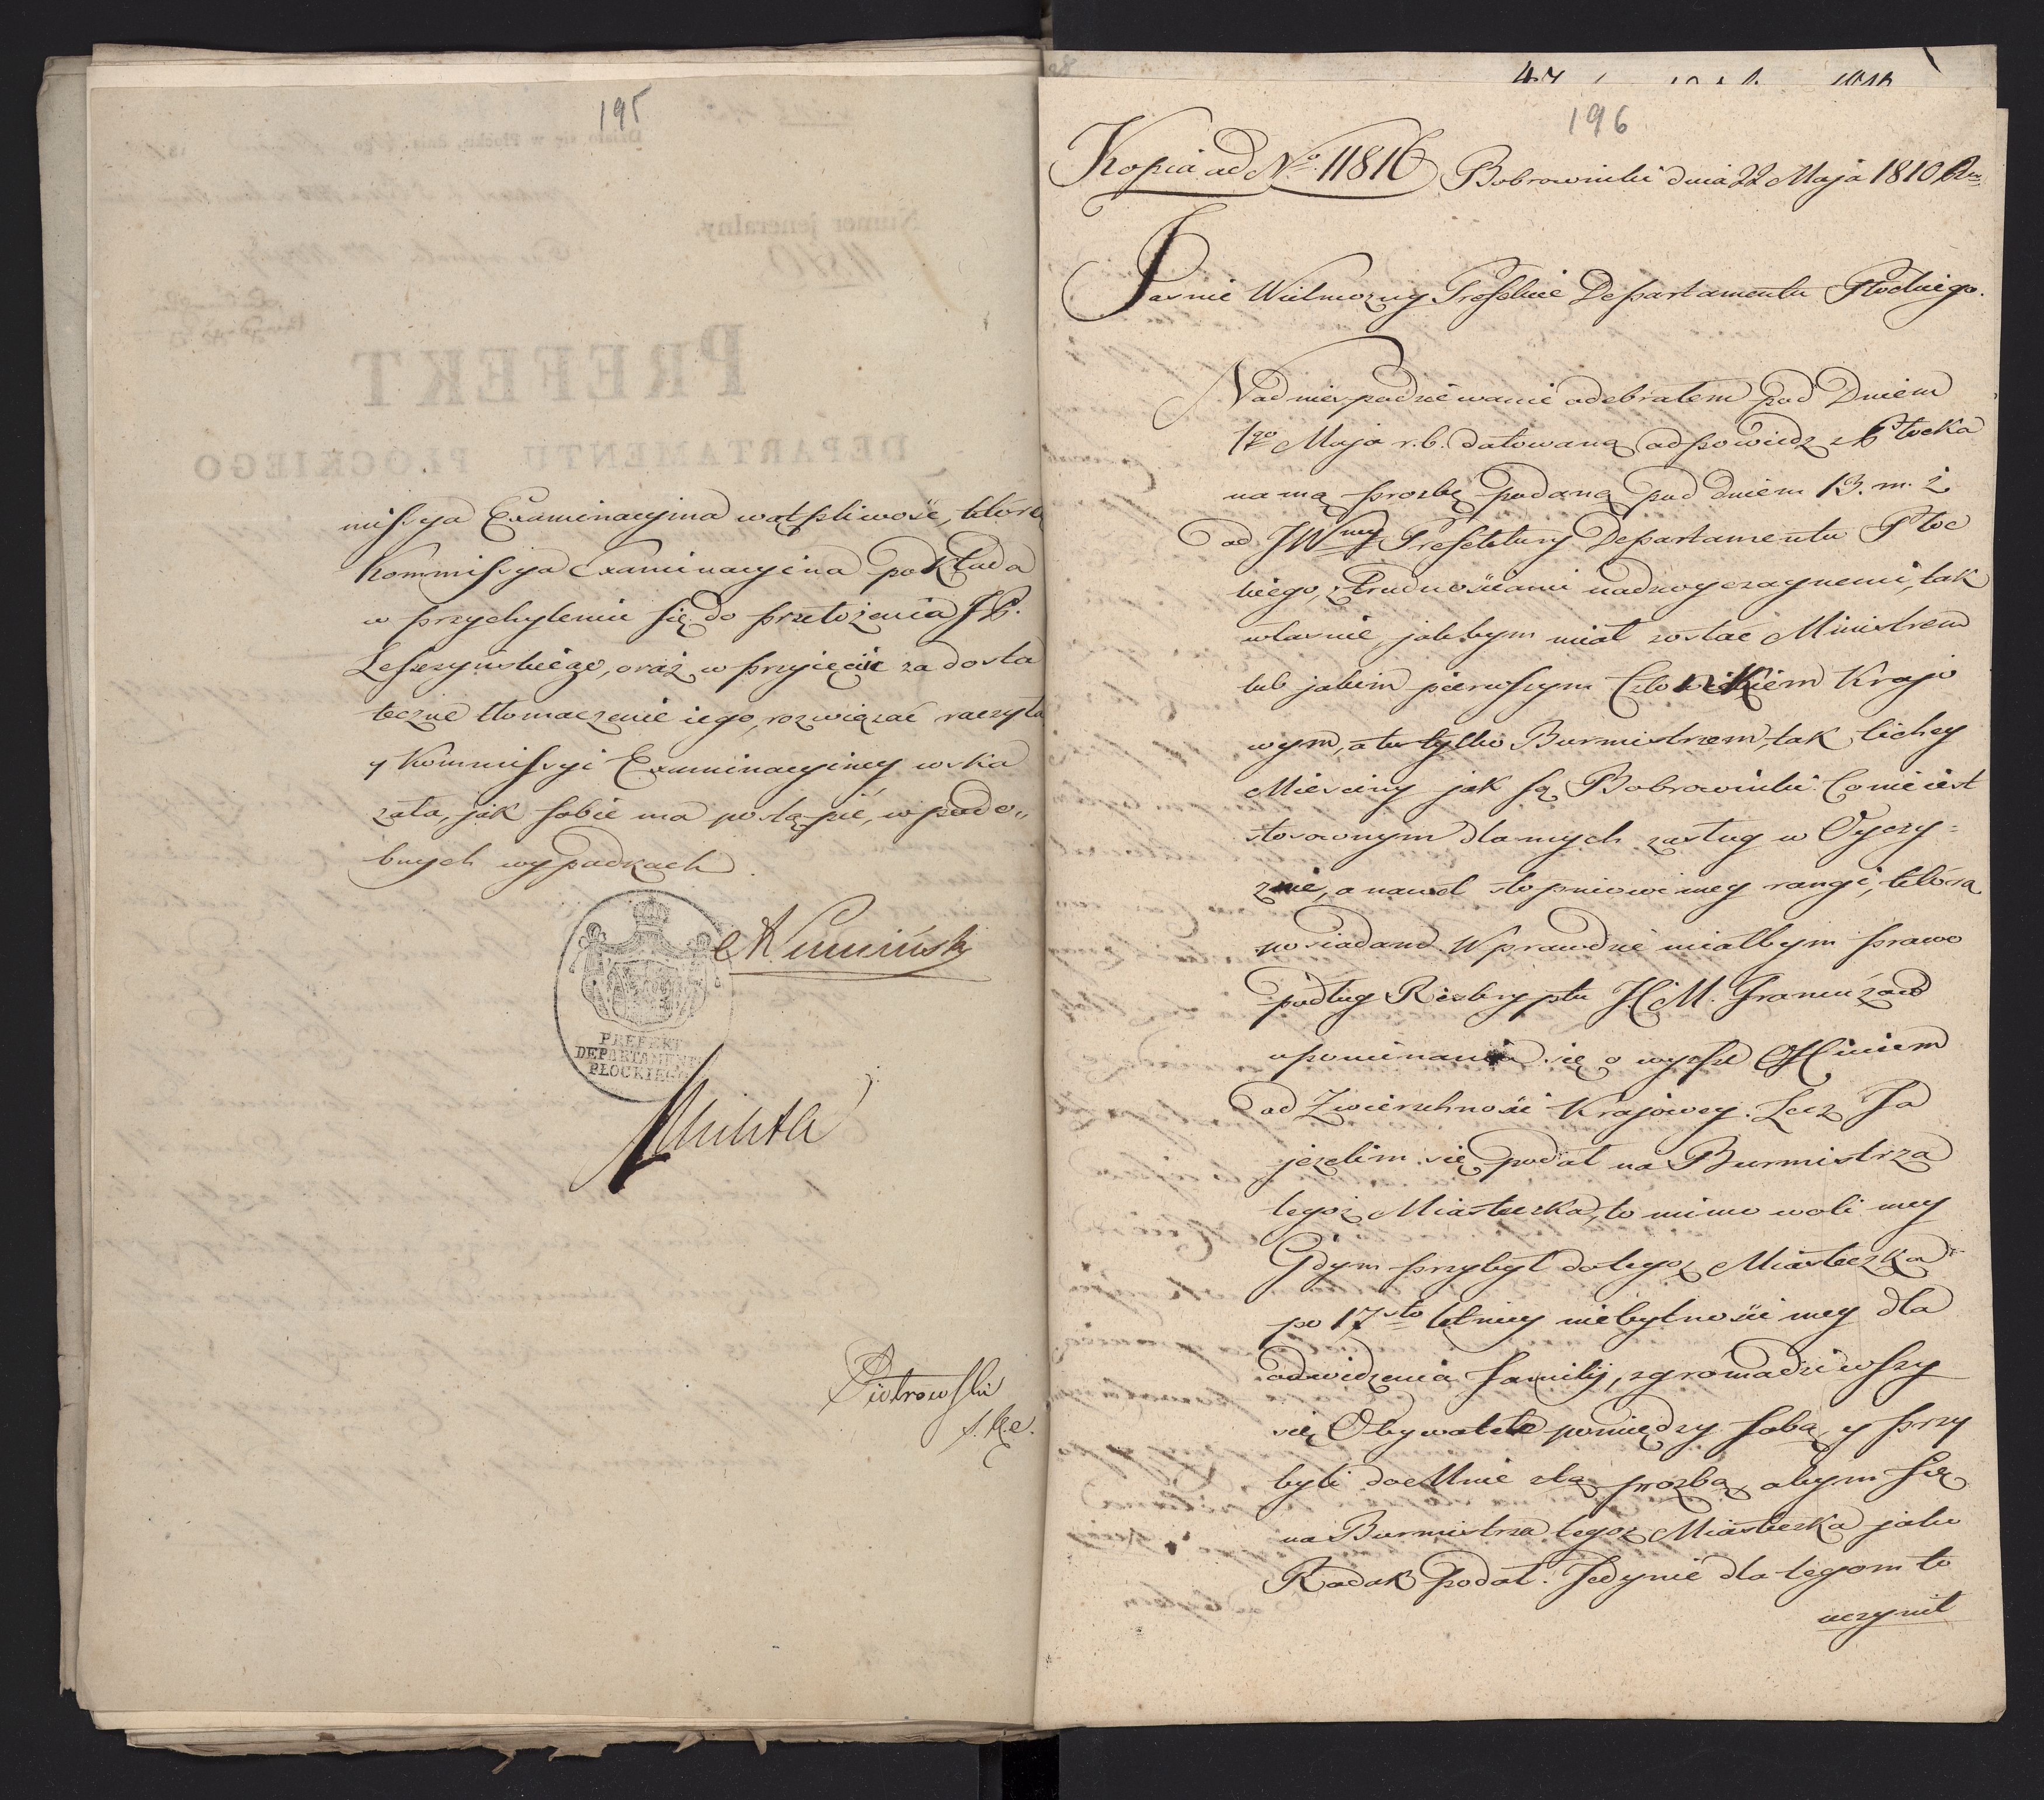 195
missya Examinacyina wątpliwość, którą
Kommissya Examinacyina pokłada
w przychyleniu się do przełożenia JP.
Leszczyńskiego, oraz w przyięciu za dosta
teczne tłomaczenie iego, rozwiązać raczyła
y Kommissyi Examinacyiney wska
zała, jak sobie ma postąpić, w podo„
bnych wypadkach.
PREFEKT
DEPARTAMENTU
PŁOCKIEGO
Piotrowski
196
Kopia ad No. 11816 Bobrowniki dnia 22 Maja 1810 Ru
Jasnie Wielmozny Prefekcie Departamentu Płockiego.
Nad niespodziewanie odebrałem pod Dniem
1go Maja r. b. datowaną odpowiedz z Płocka
na mą prozbę podaną pod dniem 13. m. z
od JWney Prefektury Departamentu Płoc
kiego, z trudnościami nadzwyczaynemi, tak
własnie, jakbym miał zostać Ministrem
lub jakim pierwszym Człowiekiem Krajo
wym, a to tylko Burmistrzem, tak lichey
Miesciny jak są Bobrowniki. Co nie iest
stosownym dla mych zasług w Oyczy=
znie, a nawet stopniowi mey rangi, którą
posiadam. Wprawdzie miałbym prawo
podług Reskryptu
upominania się o wyższe Officium
od Zwierzchnosci Krajowey. Lecz Ja
jezelim się podał na Burmistrza
tegoż Miasteczka, to mimo woli mey
Gdym przybył do tegoż Miasteczka
po 17sto letniey niebytnosci mey dla
odwidzenia Familij, zgromadziwszy
się Obywatele pomiędzy sobą, y przy
byli do Mnie z tą prozbą, abym się
na Burmistrza tegoż Miasteczka jako
Rodak podał. Jedynie dla tegom to
uczynił